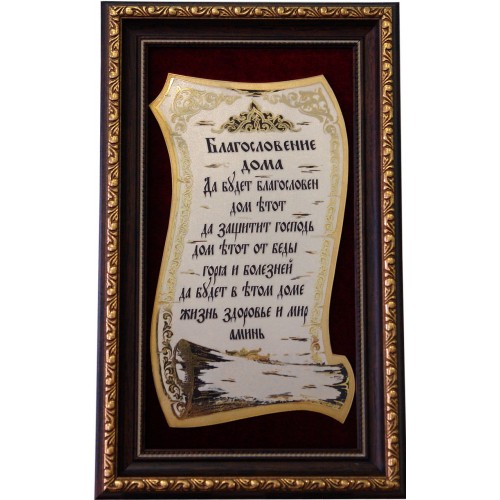 Благословение
дома
Да будет благословен
дом ѣтот
да защитит господь
дом ѣтот от беды
горя и болезней
да будет в ѣтом доме
жизнь здоровье и мир
аминь